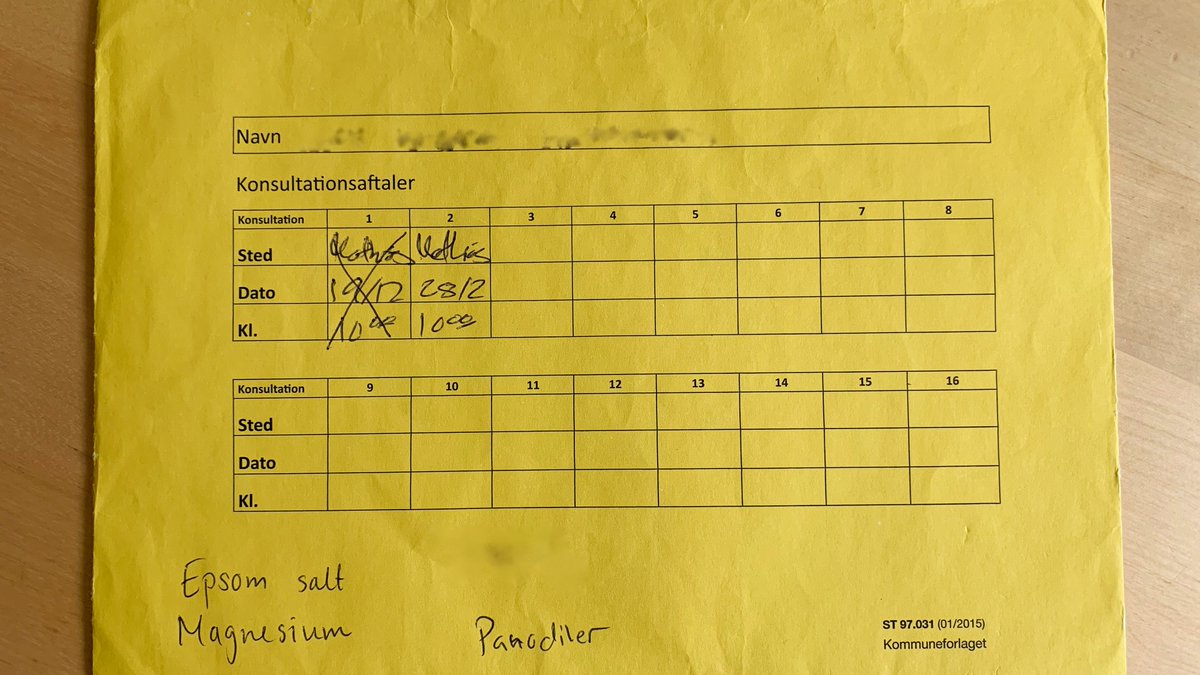 Navn
Konsultationsaftaler
Konsultation 1 2 3 4 5 6 7 8
Sted
Dato 19/12 28/2
Kl. 10⁰⁰ 10⁰⁰
Konsultation 9 10 11 12 13 14 15 16
Sted
Dato
Kl.
Epsom salt
Magnesium
Panodiler
ST 97.031 (01/2015)
Kommuneforlaget